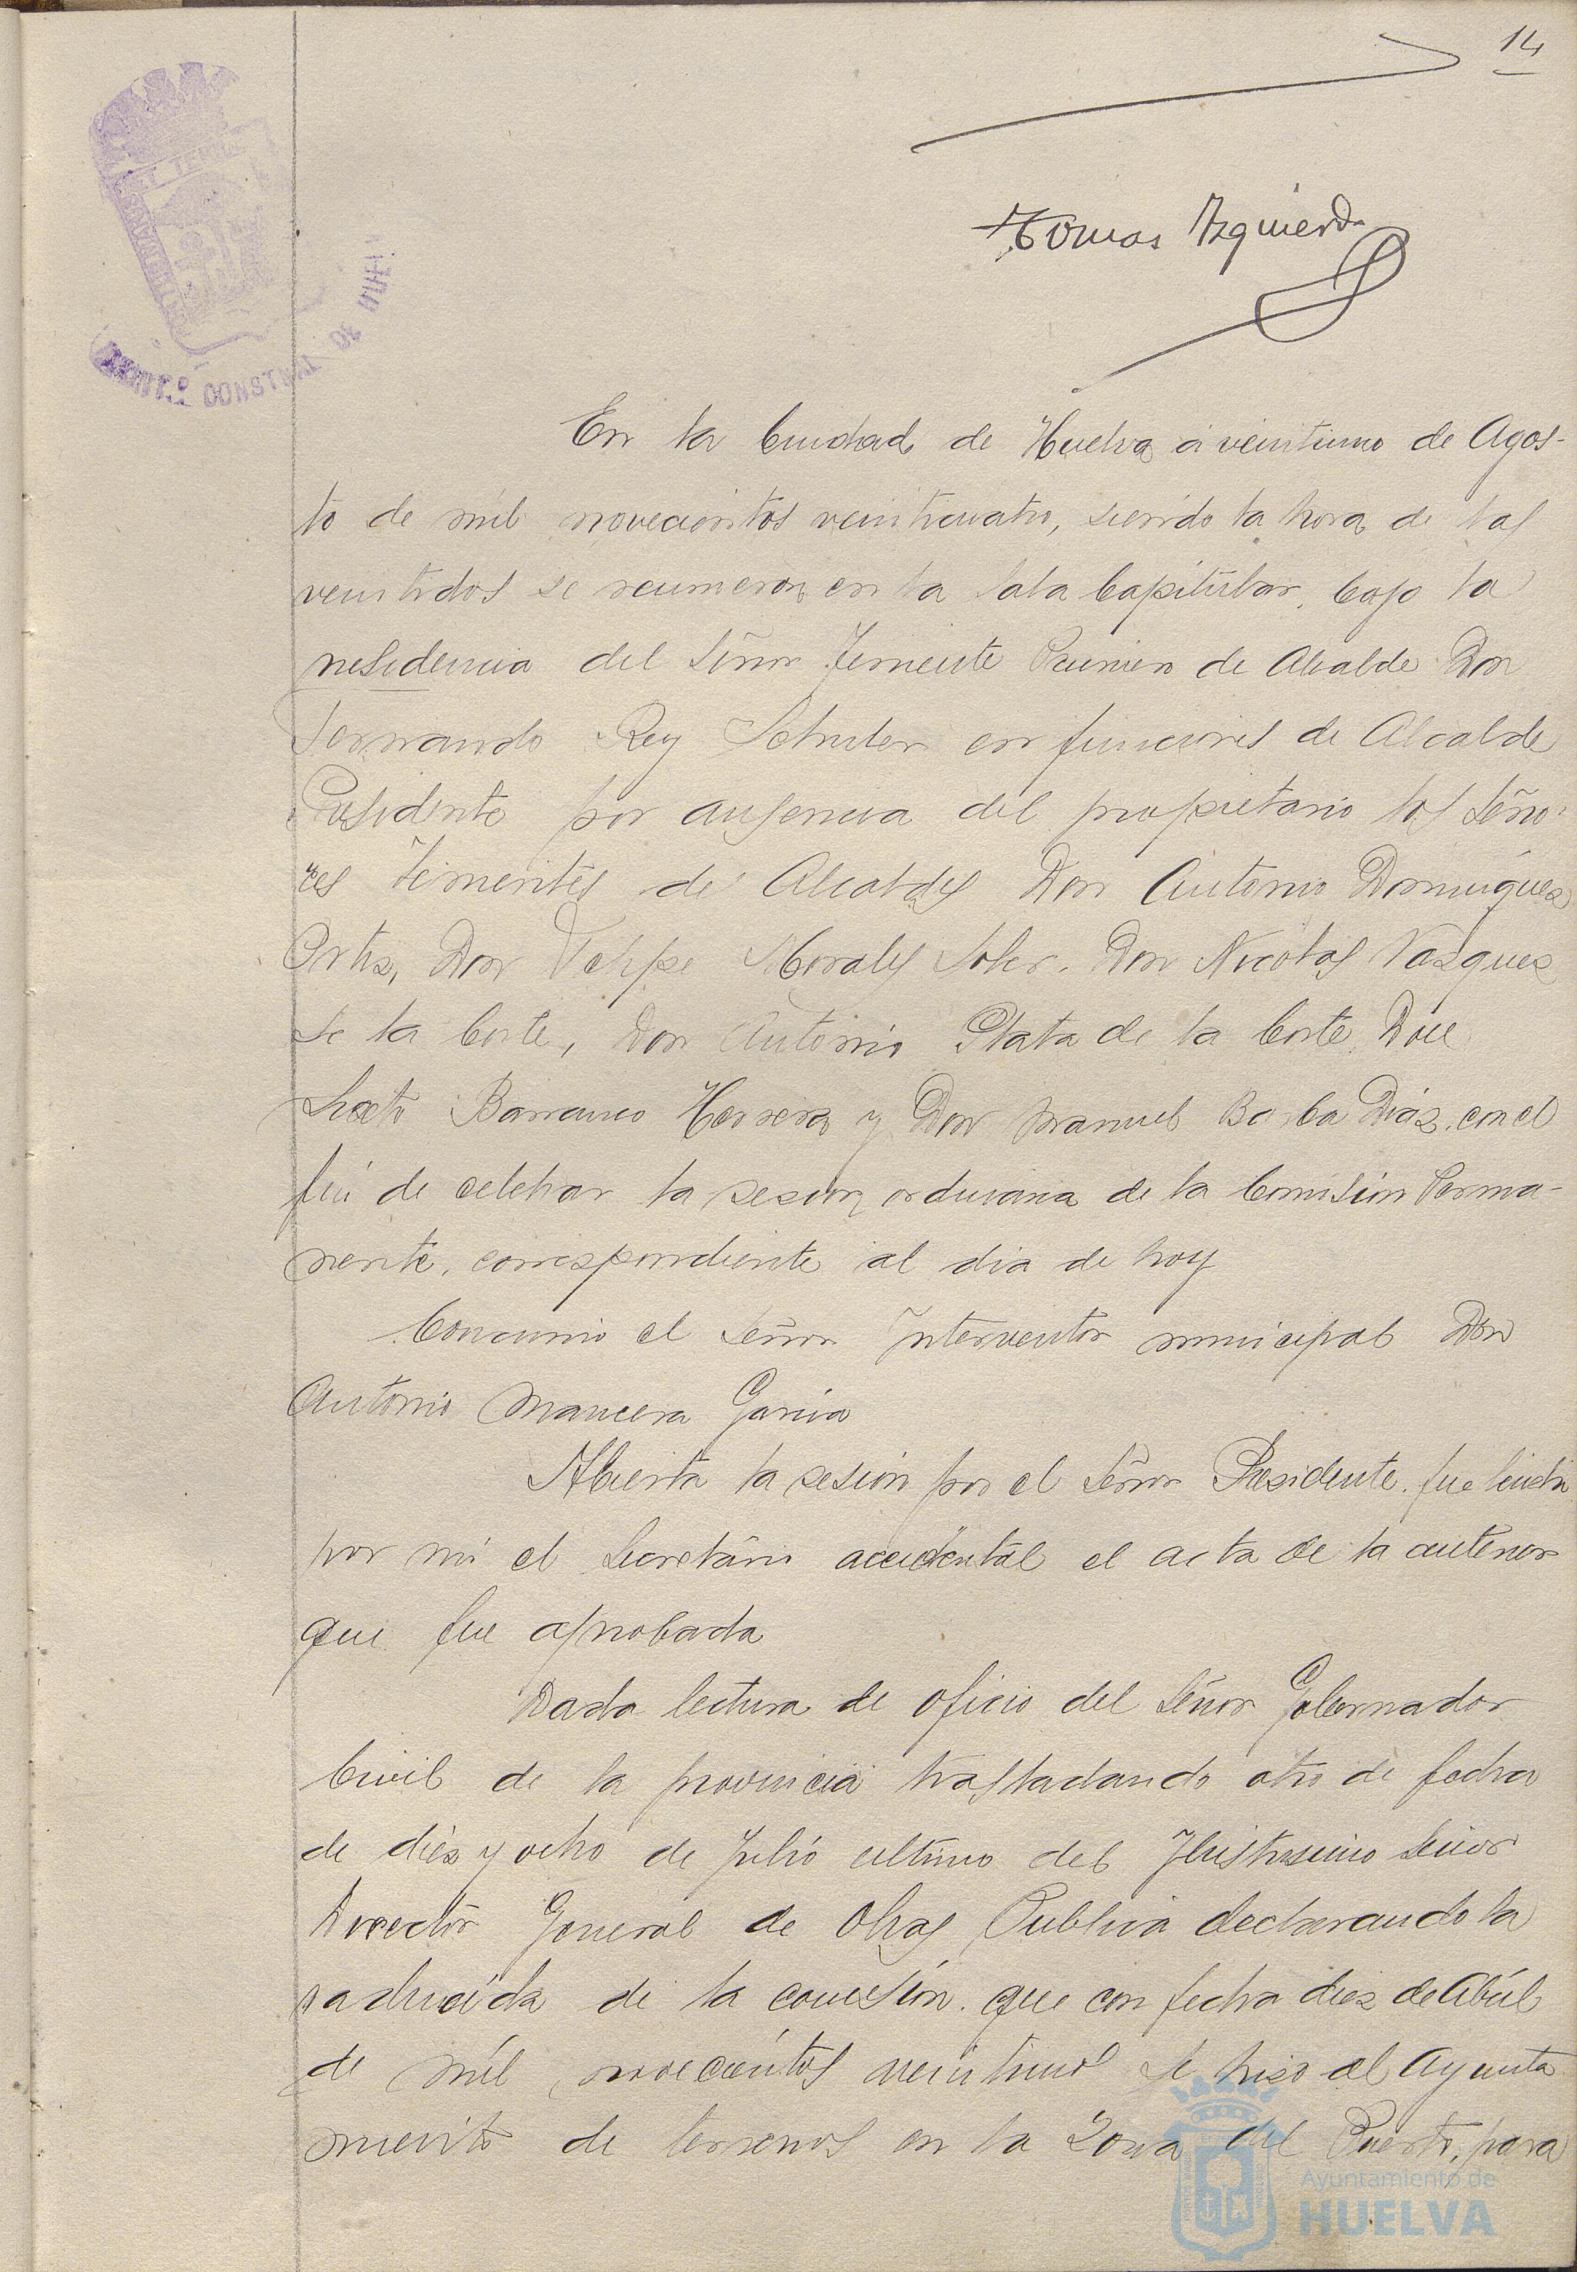 14
Tomas Izquierdo
AYUNTº CONSTNAL DE HUELVA
En la Ciudad de Huelva á veintiuno de Agos-
to de mil novecientos veinticuatro, siendo la hora de las
veintidos se reunieron en la Sala Capitular, bajo la
presidencia del Señor Teniente Primero de Alcalde Don
Fernando Rey en funciones de Alcalde
Presidente por ausencia del propietario los Seño-
res Tenientes de Alcaldes Don Antonio Dominguez
Ortiz, Don Felipe Morales Soler. Don Nicolas Vazquez
de la Corte, Don Antonio Plata de la Corte Don
Sixto Barranco Herrera y Don Manuel Barba Diaz. con el
fin de celebrar la sesion ordinaria de la Comisión Perma-
nente, correspondiente al dia de hoy
Concurrio el Señor Interventor municipal Don
Antonio Mancera Garcia
Abierta la sesión por el Señor Presidente. fue leida
por mi el Secretario accidental el acta de la anterior
que fue aprobada
Dada lectura de oficio del Señor Gobernador
Civil de la provincia trasladando otro de fecha
de diez y ocho de Julio ultimo del Ilustrisimo Señor
Director General de Obras Publica declarando la
caducidá de la concesión que con fecha diez de Abril
de mil novecientos se hizo al Ayunta
miento de terrenos en la Zona del Puerto, para
Ayuntamiento de
HUELVA